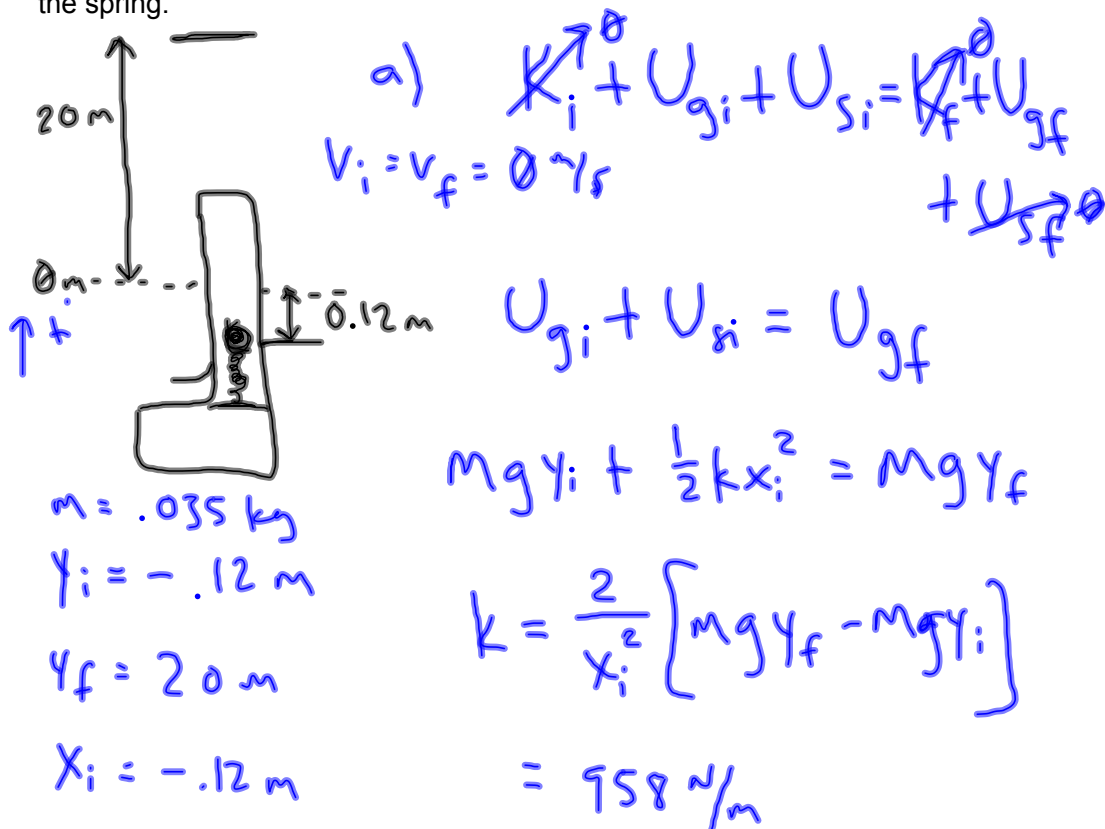 the spring.
20 m
0 m
↑ +
0.12 m
m = .035 kg
yᵢ = - .12 m
y_f = 20 m
xᵢ = - .12 m
a) Kᵢ→0 + U_gi + U_si = K_f→0 + U_gf
+ U_sf→0
vᵢ = v_f = 0 m/s
U_gi + U_si = U_gf
mgyᵢ + 1/2 kxᵢ² = mgy_f
k = 2/xᵢ² [mgy_f - mgyᵢ]
= 958 N/m